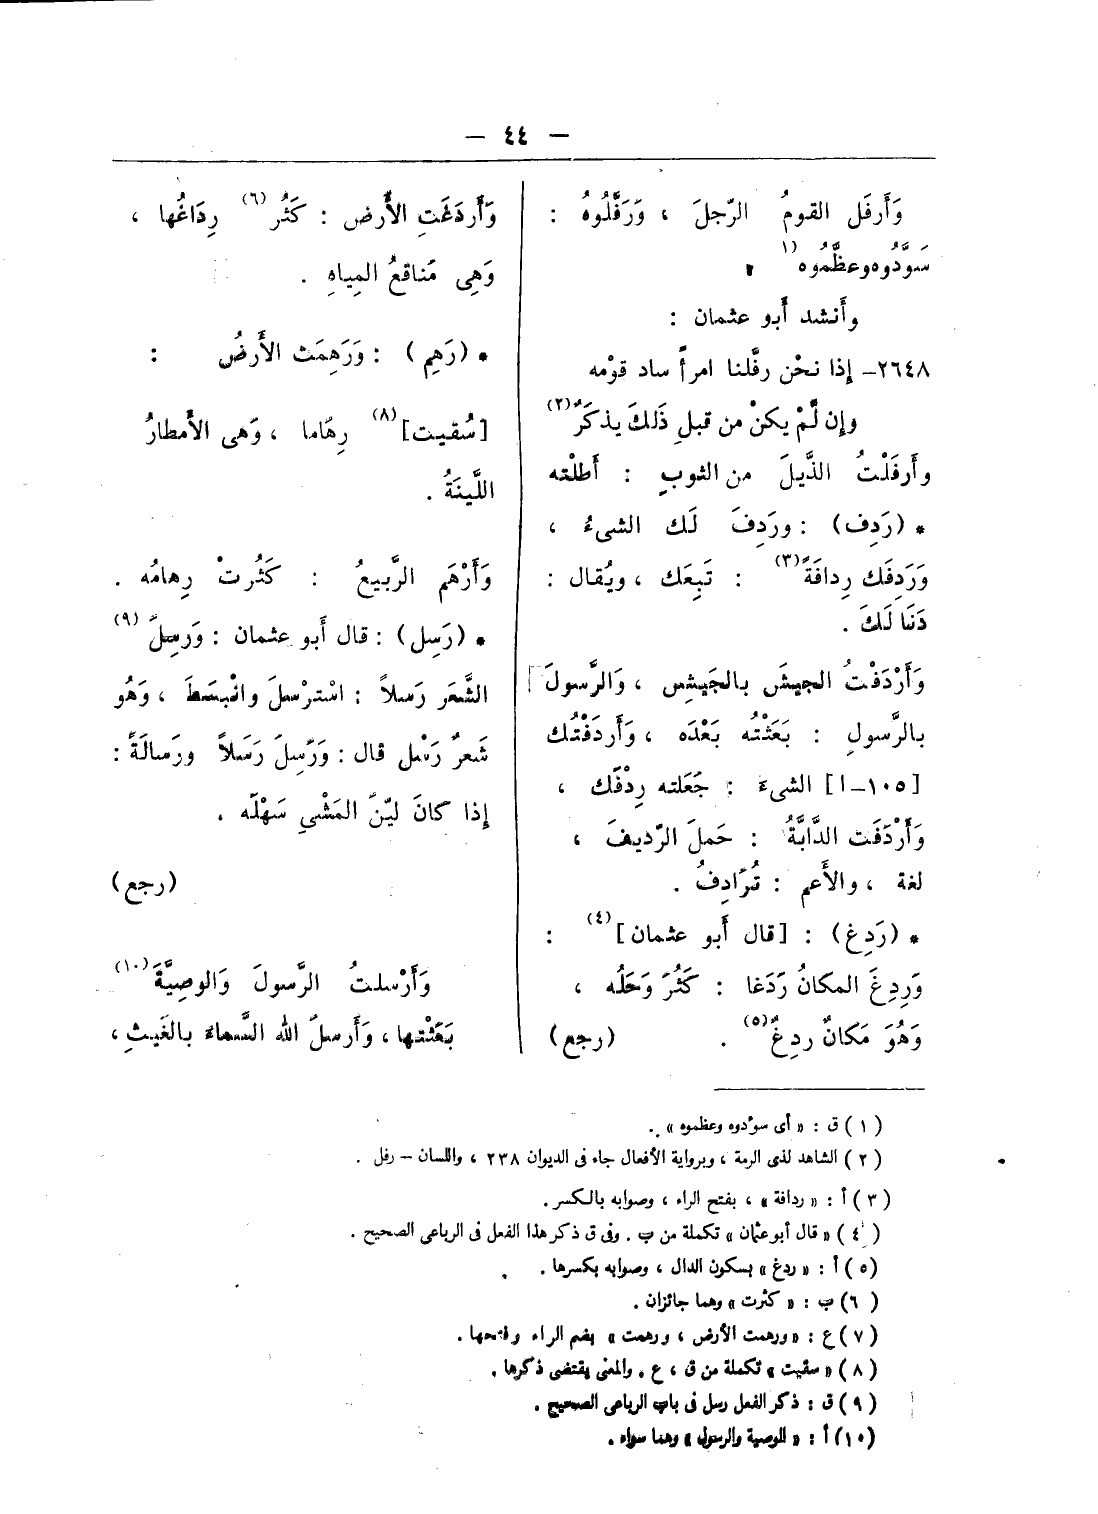 — ٤٤ —
وَأَرفَل القومُ الرّجلَ ، وَرَفَّلُوهُ :
سَوَّدُوه وعظَّمُوه (١)
وأَنشد أَبو عثمان :
٢٦٤٨ـ إذا نحْن رفَّلنا امرأً ساد قوْمه
وإن لَّمْ يكنْ من قبلِ ذَلكَ يذكَرُ (٢)
وأَرفَلْتُ الذَّيلَ من الثوبِ : أَطلْته
* (رَدِف) : وردِفَ لَك الشىءُ ،
وَرَدِفَك رِدافَةً (٣) : تَبِعَك ، ويُقال :
دَنَا لَكَ .
وَأَرْدَفْتُ الجيشَ بالجَيشِ ، وَالرَّسولَ
بالرَّسولِ : بَعَثْتُه بَعْدَه ، وَأَردَفْتُك
[١٠٥ـ ا] الشىءَ : جَعَلته رِدْفَك ،
وَأَرْدَفَت الدَّابَّةُ : حَملَ الرّديفَ ،
لغة ، والأَعم : تُرَادِفُ .
* (رَدِغ) : [قال أَبو عثمان] (٤) :
وَرِدِغَ المكانُ رَدَغا : كَثُرَ وَحَلُه ،
وَهُوَ مَكانٌ ردِغٌ (٥) . (رجع)
وَأَردَغَتِ الأَرض : كَثُر (٦) رِدَاغُها ،
وَهِى مَناقعُ المِياهِ .
* (رَهِم) : وَرَهِمَت الأَرضُ :
[سُقيت] (٨) رِهَاما ، وَهى الأَمطارُ
اللَّينَةُ .
وَأَرْهَم الرَّبيعُ : كَثُرتْ رِهامُه .
* (رَسِل) : قال أَبو عثمان : وَرسِلَ (٩)
الشَّعَر رَسلاً : اسْترْسلَ وانْبسَطَ ، وَهُو
شَعرٌ رَسْل قال : وَرَسِلَ رَسَلاً ورَسالَةً :
إذا كانَ ليّنَ المَشْىِ سَهْلَه .
(رجع)
وَأَرْسلتُ الرَّسولَ وَالوصِيَّةَ (١٠)
بَعَثْتها ، وَأَرسلَ الله السَّماءَ بالغَيثِ ،
( ١ ) ق : « أى سوّدوه وعظموه » .
( ٢ ) الشاهد لذى الرمة ، وبرواية الأفعال جاء فى الديوان ٢٣٨ ، واللسان – رفل .
( ٣ ) أ : « ردافة » ، بفتح الراء ، وصوابه بالكسر .
( ٤ ) « قال أبو عثمان » تكملة من ب . وفى ق ذكر هذا الفعل فى الرباعى الصحيح .
( ٥ ) أ : « ردغ » بسكون الدال ، وصوابه بكسرها .
( ٦ ) ب : « كثرت » وهما جائزان .
( ٧ ) ع : « ورهمت الأرض ، ورهمت » بضم الراء وفتحها .
( ٨ ) « سقيت » تكملة من ق ، ع . والمعنى يقتضى ذكرها .
( ٩ ) ق : ذكر الفعل رسل فى باب الرباعى الصحيح .
(١٠) أ : « الوصية والرسول » وهما سواء .